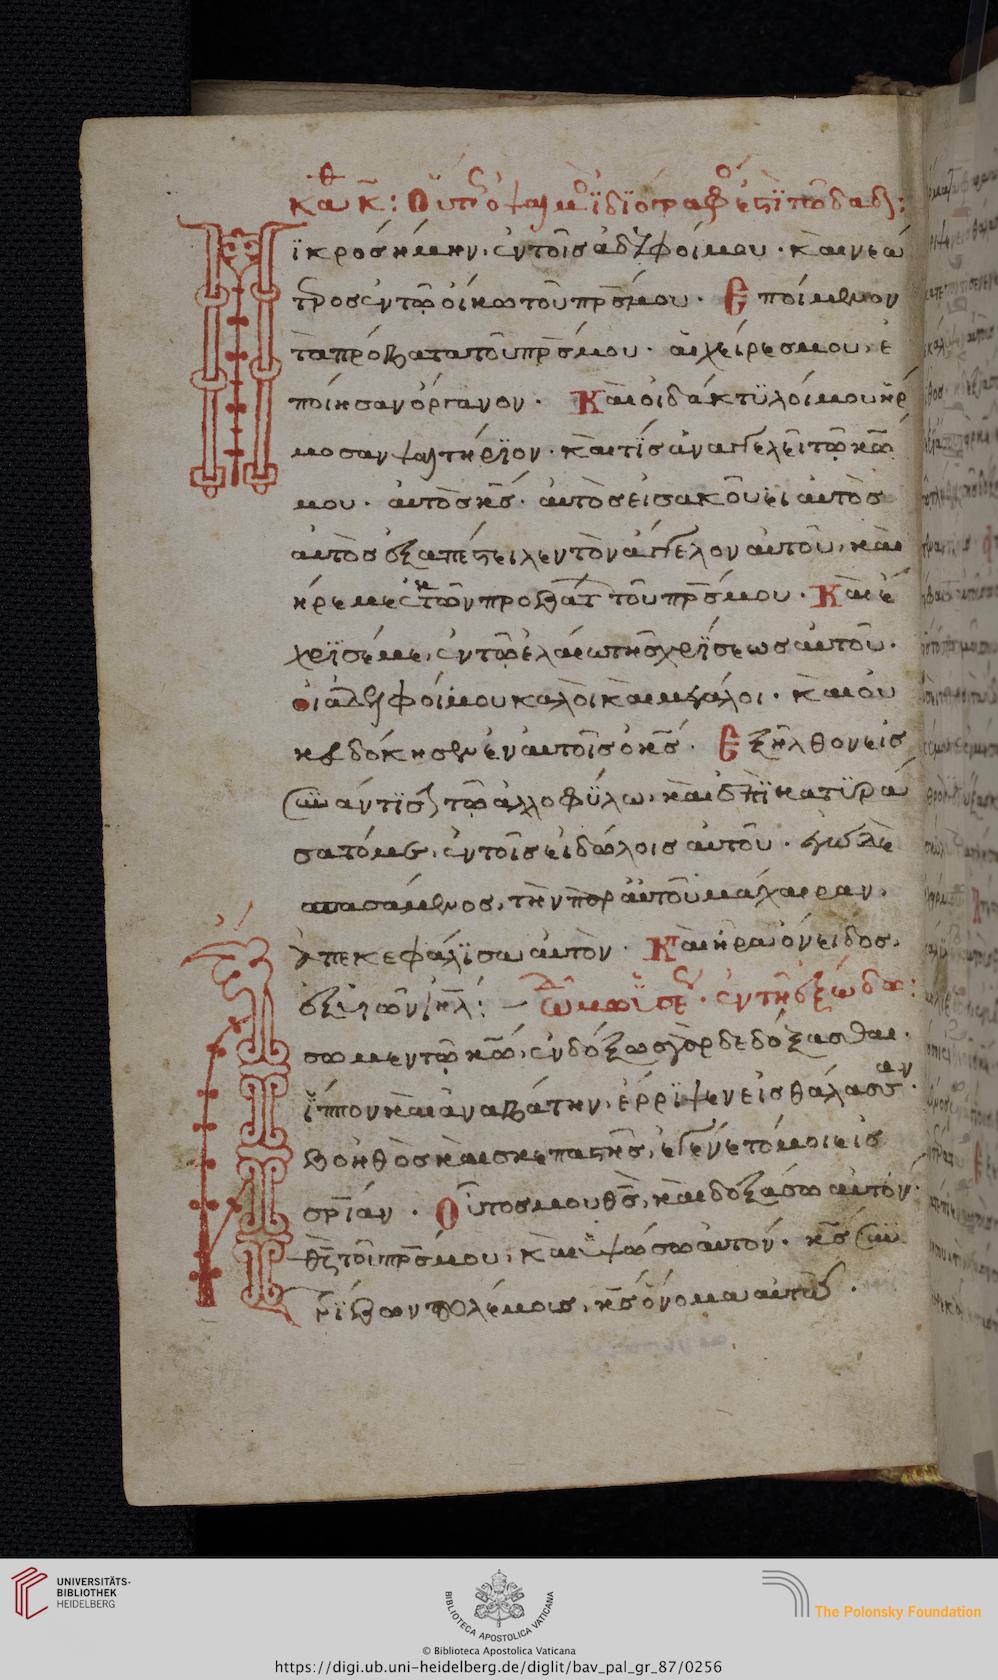 κα κ: Οὗτος ὁ ψαλμὸς ἰδιόγραφος ἐστὶ τοῦ δαδ:
ϊκροσήμην· ἐντοῖσἀδελφοίμου· καινεώ
τροσἐντῶοίκωτοῦπρσμου· Εποίμαινον
τὰπρόβατατοῦπρσμου· αιχείρεσμου, ἐ
ποίησανόργανον· Καιοιδάκτϋλοίμουἥρ
μοσανψαλτήριον· καιτίσἀναγγελεῖτῶκω
μου· ἀυτὸσκσ· ἀυτὸσεἰσακούει ἀυτὸσ
ἀυτὸσἐξαπέστειλεντὸνἄγγελοναὐτοῦ, και
ἠρεμεἐκτῶνπροβάτ τοῦπρσμου· Καιἐ
χρϊσέμε, ἐντῶἐλαίωτῆσχρΐσεωσἀυτοῦ·
οιἀδελφοίμουκαλοὶκαιμεγάλοι· καιοὐ
κηυδόκησενἐναυτοῖσὁκσ· Εξῆλθονεἰσ
συνάντϊσιντῶἀλλοφΰλω, καιἐπϊκατϊρά
σατόμε, ἐντοῖσειδώλοισἀυτοῦ· ἐγωδὲ
σπασάμενος, τὴνπαραὐτοῦμάχαιραν,
ἀπεκεφάλϊσααυτὸν· Καιῆραὄνειδοσ,
ἐξυιῶνιηλ: – Ωδὴ μωϊσέως· ἐντῆἐξόδω:
σωμεντῶκω, ἐνδόξωσγὰρδεδόξασται·
ἵππονκαιἀναβάτην, ἔρριψενεἰσθάλασσαν·
Βοηθὸσκαισκεπαστὴσ, ἐγένετόμοιεἰσ
σρίαν· Οὗτοσμουθσ, καιδοξάσωαυτόν·
θστοῦπρσμου, καιὑψώσωαυτόν· κσσυν
τρΐβωνπολέμουσ, κσὄνομααυτῶ·
UNIVERSITÄTS-
BIBLIOTHEK
HEIDELBERG
BIBLIOTECA APOSTOLICA VATICANA
© Biblioteca Apostolica Vaticana
The Polonsky Foundation
https://digi.ub.uni-heidelberg.de/diglit/bav_pal_gr_87/0256